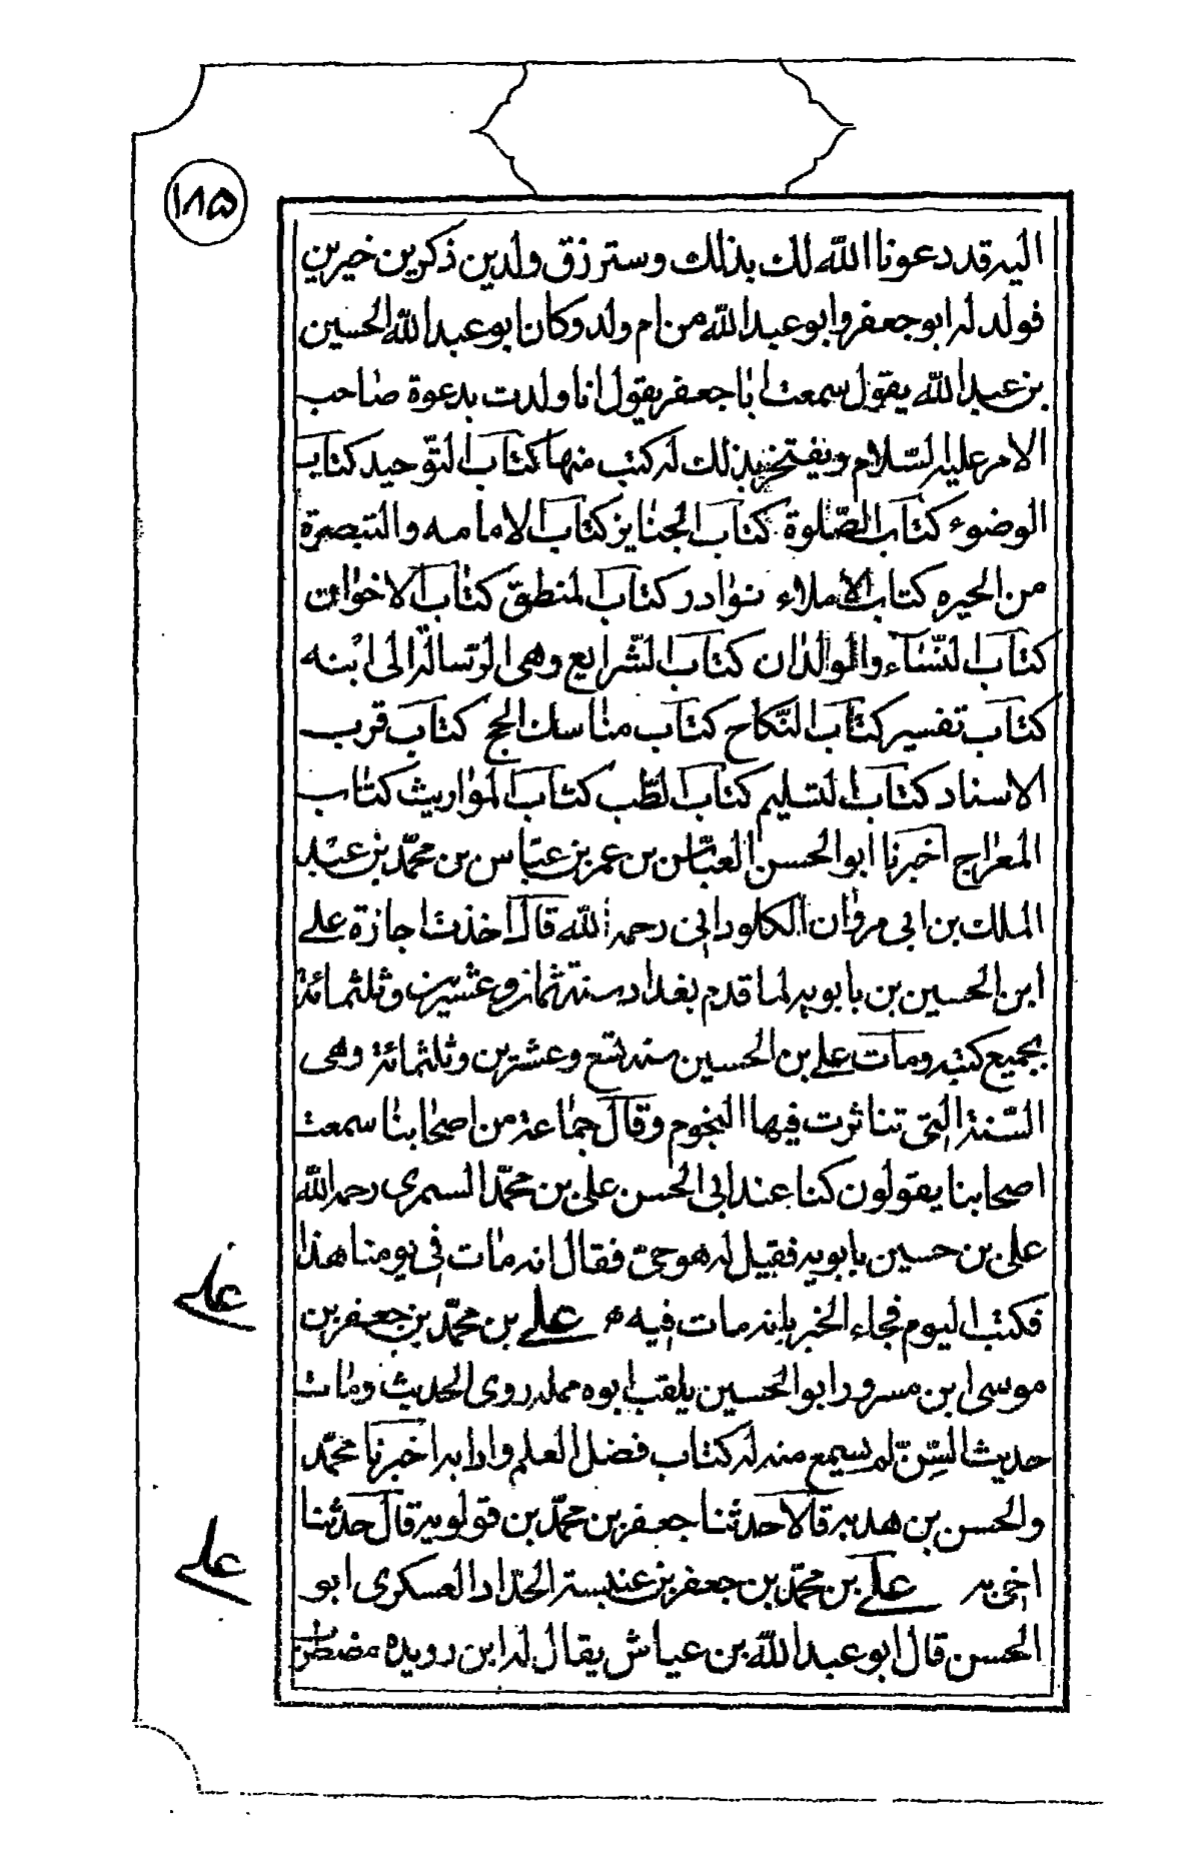 ١٨۵
اليه قد دعونا الله لك بذلك وسترزق ولدين ذكرين خيرين
فولد له ابو جعفر وابو عبد الله من ام ولد وكان ابو عبد الله الحسين
بن عبيد الله يقول سمعت ابا جعفر يقول انا ولدت بدعوة صاحب
الامر عليه السّلام ويفتخر بذلك له كتب منها كتاب التّوحيد كتاب
الوضوء كتاب الصّلوة كتاب الجنايز كتاب الامامه والتبصرة
من الحيره كتاب الاملاء نوادر كتاب المنطق كتاب الاخوان
كتاب النّساء والوالدان كتاب الشّرايع وهى الرّسالة الى ابنه
كتاب تفسير كتاب النّكاح كتاب مناسك الحج كتاب قرب
الاسناد كتاب التسليم كتاب الطّب كتاب المواريث كتاب
المعراج اخبرنا ابو الحسن العبّاس بن عمر بن عبّاس بن محمّد بن عبد
الملك بن ابى مروان الكلوذانى رحمه الله قال اخذت اجازة علي
ابن الحسين بن بابويه لما قدم بغداد سنة ثمان وعشرين وثلثمائة
بجميع كتبه ومات علي بن الحسين سنه تسع وعشرين وثلثمائة وهى
السّنة التى تناثرت فيها النجوم وقال جماعة من اصحابنا سمعت
اصحابنا يقولون كنا عند ابى الحسن على بن محمّد السمرى رحمه الله
على بن حسين بابويه فقيل له هو حى فقال انه مات فى يومنا هذا
فكتب اليوم فجاء الخبر بانه مات فيه م علي بن محمّد بن جعفر بن
علي
موسى ابن مسرور ابو الحسين يلقب ابوه ممله روى الحديث ومات
حديث السّن لم يسمع منه له كتاب فضل العلم وادابه اخبرنا محمّد
والحسن بن هدبه قالا حدثنا جعفر بن محمّد بن قولويه قال حدثنا
اخى به علي بن محمّد بن جعفر بن عنبسة الحدّاد العسكرى ابو
علي
الحسن قال ابو عبد الله بن عياش يقال له ابن رويده مضطرب